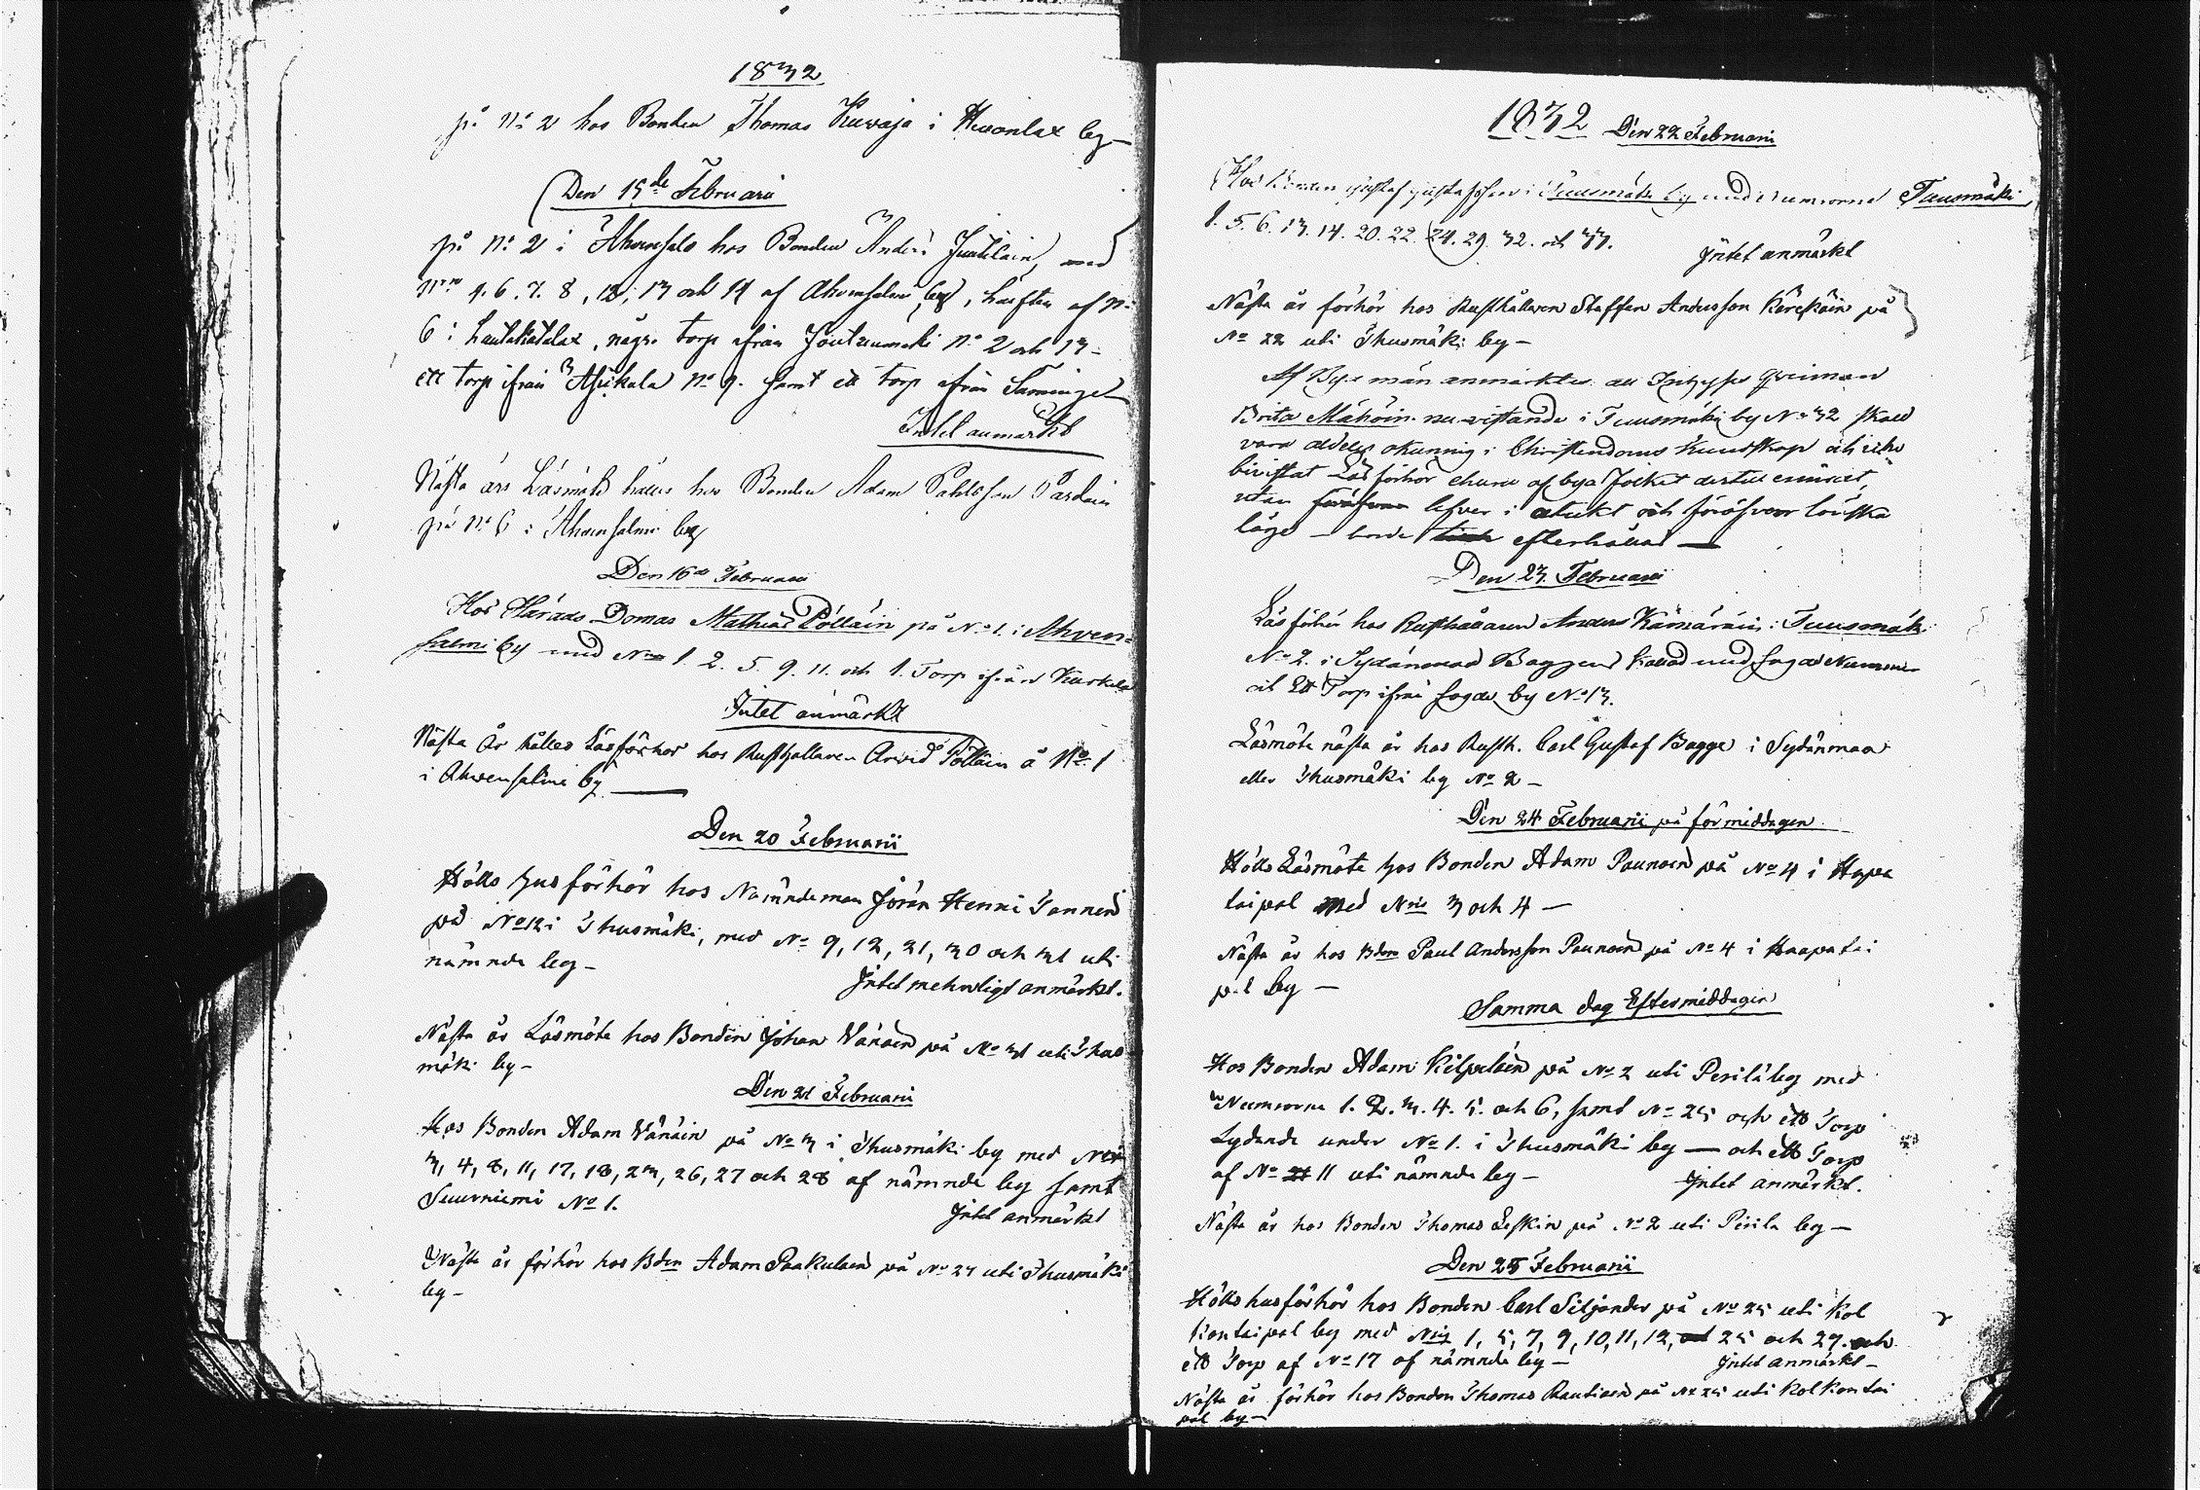 1832
på No 2 hos Bonden Thomas Kuvaja i Huvonlax by –
Den 15de Februarii
på No 2 i Ahvensalo hos Bonden Anders Juutilain, med
Nrn 4. 6. 7. 8, 12, 13 och 14 af Ahvensalmi by, hälften af No
6 i Lautakotalax, några torp ifrån Joutzenmäki No 2 och 13 –
ett torp ifrån No 9. samt ett torp ifrån Sarminge
Intet anmärkt
Nästa års Läsmöte hålles hos Bonden Adam Pahlsson Pardain
på No 6 i Ahvensalmi by
Den 16de Februarii
Hos Härads Domas Mathias Pöllain på No 1. i Ahven-
salmi by med Nrn 1. 2. 5. 9. 11. och 1. Torp ifrån Kurkela
Intet anmärkt
Nästa År hålles Läsförhör hos Rusthållaren Arvid Pöllain å No 1
i Ahvensalmi by
Den 20 Februarii
Hölls husförhör hos Nämndeman Jöran Henric Tannen
på No 12 i Thusmäki, med No 9, 12, 21, 30 och 31 uti
nämnde by –
Intet mehrligt anmärkt.
Nästa år Läsmöte hos Bonden Johan Vänäin på No 31 uti Thus
mäki by –
Den 21 Februarii
Hos Bonden Adam Vänäin på No 3 i Thusmäki by med Nris
3, 4, 8, 11, 17, 18, 23, 26, 27 och 28 af nämnde by samt
Suurniemi No 1.
Intet anmärkt
Nästa år förhör hos Bden Adam Paakulaen på No 27 uti Thusmäki
by –
1832 Den 22 Februarii
Hos Bonden Gustaf Gustafsson i Tuusmäki by med Numrorna Tuusmäki
1. 5. 6. 13. 14. 20. 22. 24. 29. 32. och 33.
Intet anmärkt
Nästa år förhör hos Rusthållaren Staffan Andersson Kärckäin på
No 22 uti Thusmäki by –
Af Byemän anmärktes att Inhyses Qvinnan
Brita Mähöin nu vistande i Tuusmäki by No 32 skall
vara aldeles okunnig i Christendoms Kunskap och icke
bivistat Läsförhör ehuru af bya folket dertill emirat,
utan föröfvar lefver i otukt och föröfver löuska
läge – borde efterhållas –
Den 23. Februarii
Läsförhör hos Rusthållaren Anders Kämäräin i Tuusmäki
No 2. i Sydänmaa Baggens kallad med sagde Nummer
och Ett Torp ifrån sagde by No 13.
Läsmöte nästa år hos Rusth. Carl Gustaf Bagge i Sydänmaa
eller Thusmäki by No 2 –
Den 24 Februarii på förmiddagen
Hölls Läsmöte hos Bonden Adam Paunoen på No 4 i Hapa
taipal med Nris 3 och 4 –
Nästa år hos Bden Paul Andersson Paunoen på No 4 i Haapatai
pal by –
Samma dag Eftermiddagen
Hos Bonden Adam Kilpeläin på No 2 uti Perilä by med
Numrorna 1. 2. 3. 4. 5. och 6, samt No 25 och ett Torp
Lydande under No 1. i Thusmäki by – och ett Torp
af No 21 11 uti nämnde by –
Intet anmärkt.
Nästa år hos Bonden Thomas Leskin på No 2 uti Pirila by –
Den 25 Februarii
Hölls husförhör hos Bonden Carl Siljander på No 25 uti Kol
kontaipal by med Nris 1, 5, 7, 9, 10, 11, 12, och 25 och 27. och
ett Torp af No 17 af nämnde by –
Intet anmärkt –
Nästa år förhör hos Bonden Thomas Rautiaen på No 25 uti Kolkontai
pal by –